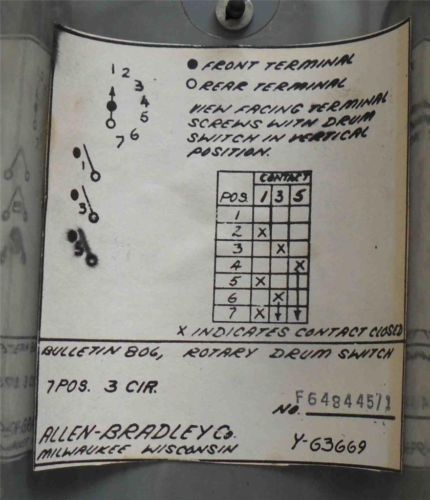 1 2 3 4 5 6 7
● FRONT TERMINAL
○ REAR TERMINAL
VIEW FACING TERMINAL
SCREWS WITH DRUM
SWITCH IN VERTICAL
POSITION.
1
3
5
CONTACT
POS. 1 3 5
1
2 X
3 X
4 X
5 X
6 X
7 X
X INDICATES CONTACT CLOSED
BULLETIN 806, ROTARY DRUM SWITCH
7 POS. 3 CIR.
NO. F64844571
ALLEN-BRADLEY CO.
MILWAUKEE WISCONSIN Y-63669